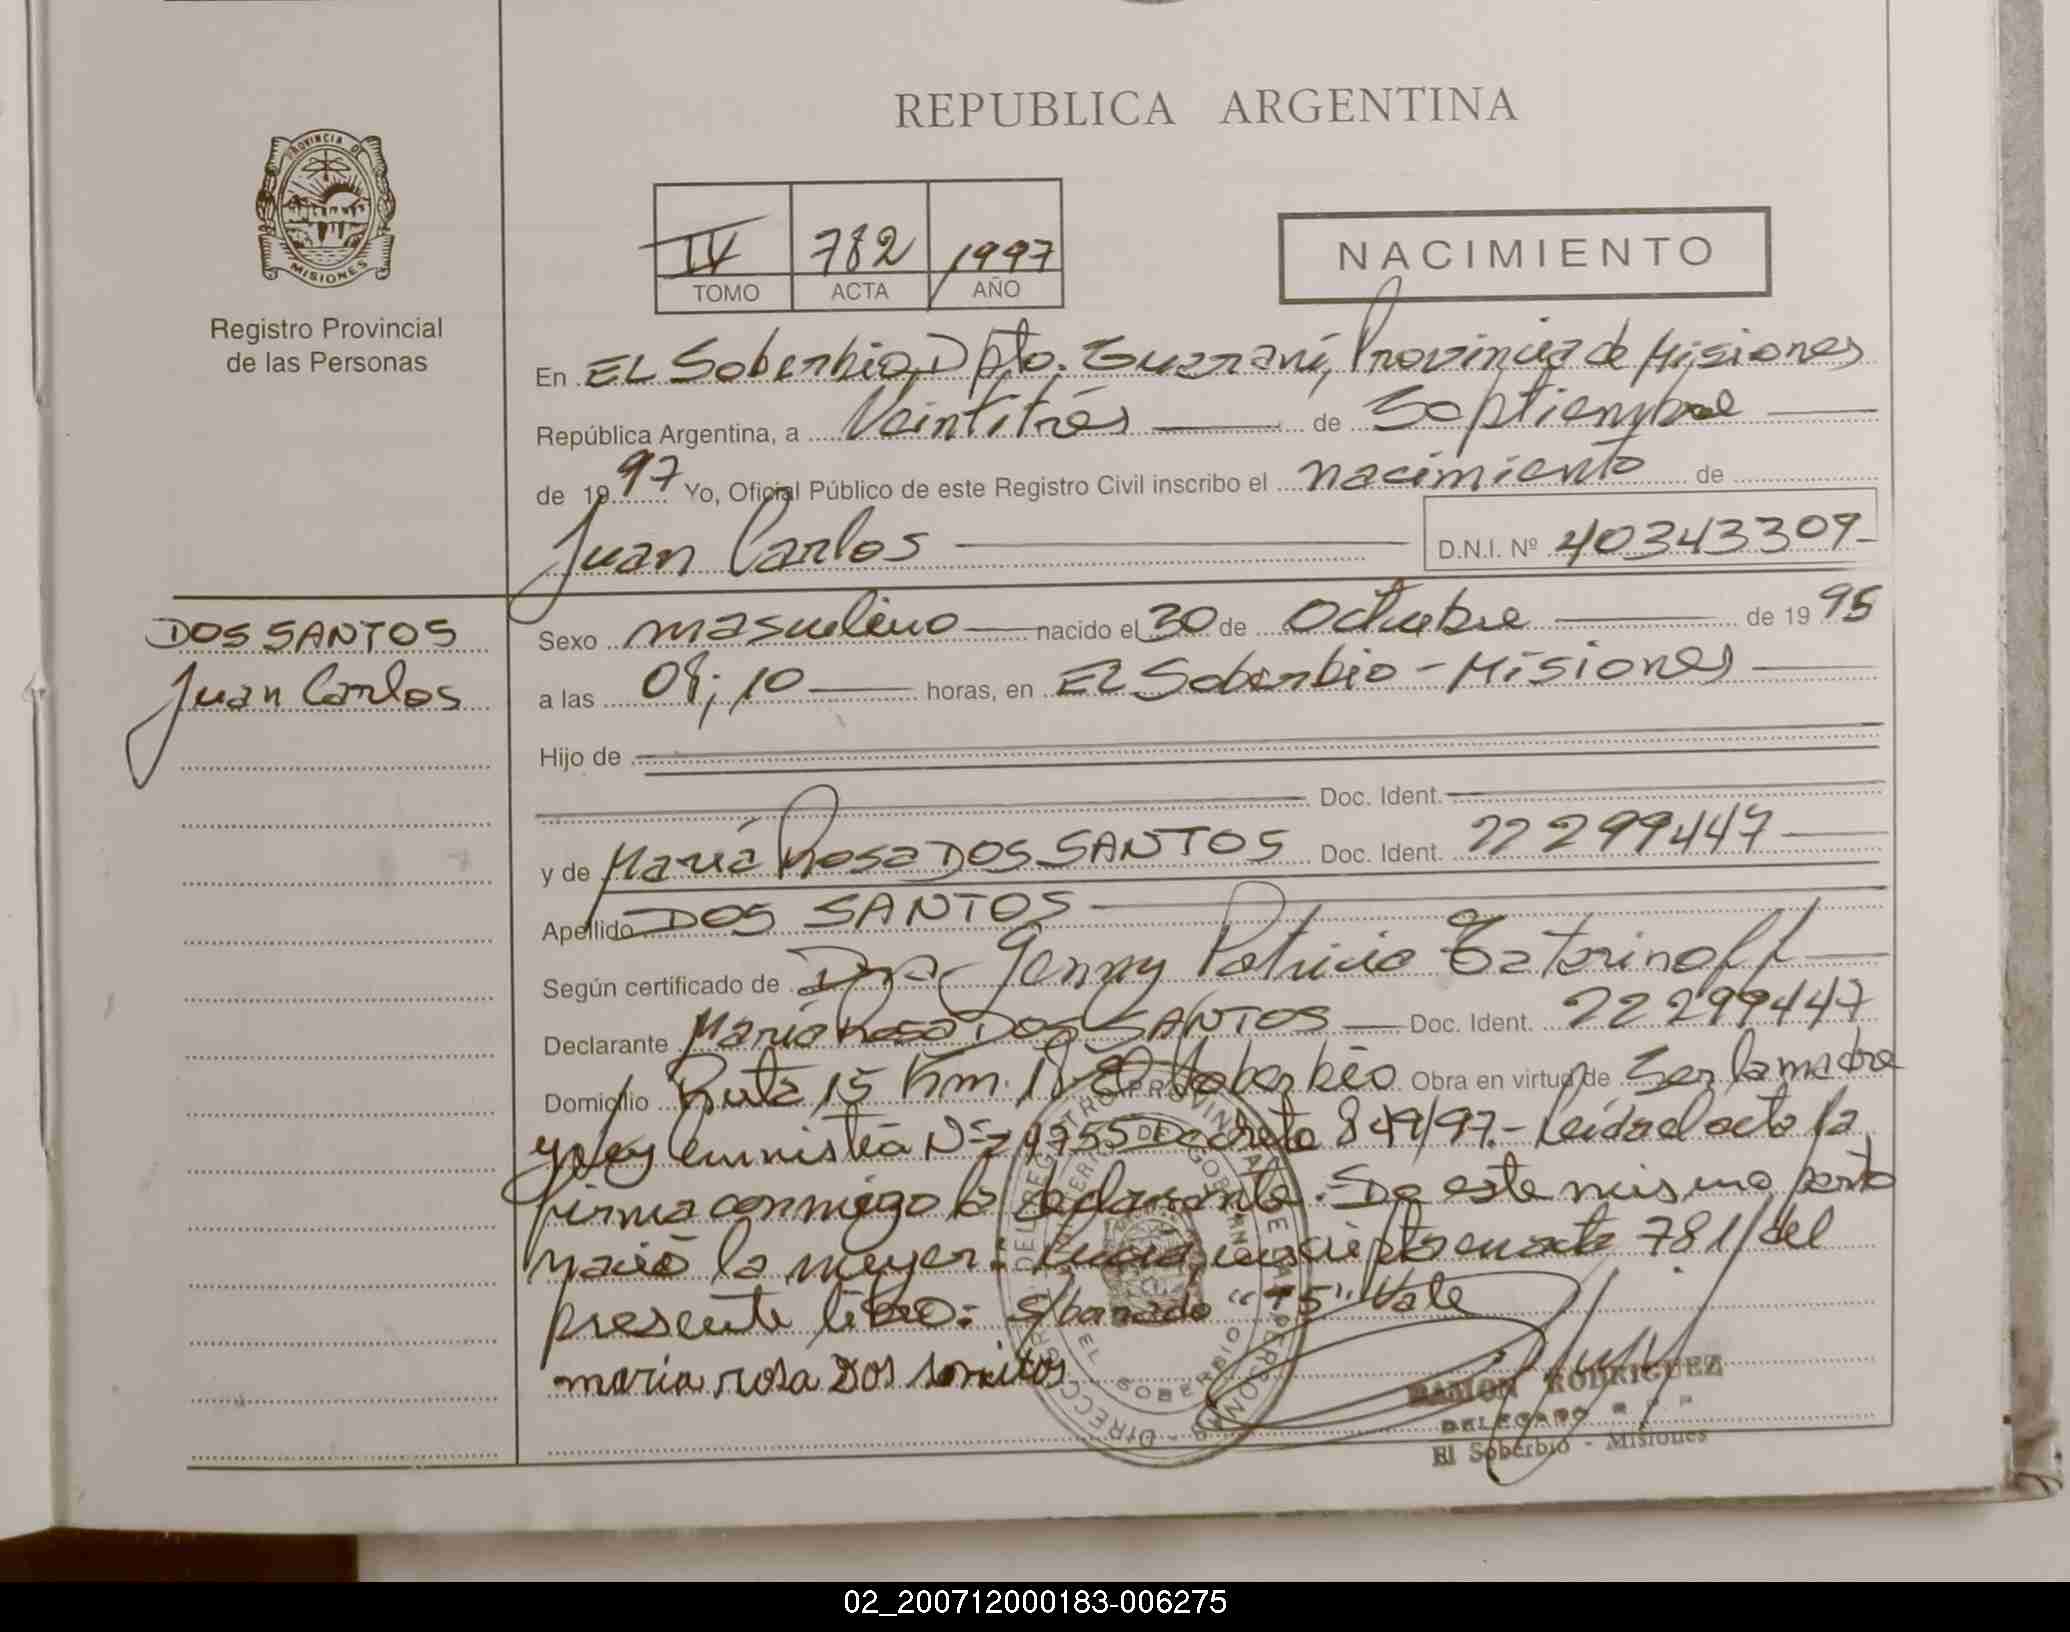 REPUBLICA ARGENTINA
PROVINCIA DE
MISIONES
Registro Provincial
de las Personas
IV 782 1997
TOMO ACTA AÑO
NACIMIENTO
En El Soberbio, Dpto. Guaraní, Provincia de Misiones
República Argentina, a Veintitrés de Septiembre
de 1997 Yo, Oficial Público de este Registro Civil inscribo el nacimiento de
Juan Carlos D.N.I. Nº 40343309
DOS SANTOS
Juan Carlos
Sexo masculino nacido el 30 de Octubre de 1995
a las 08;10 horas, en El Soberbio - Misiones
Hijo de
Doc. Ident.
y de María Rosa DOS SANTOS Doc. Ident. 22299447
Apellido DOS SANTOS
Según certificado de Dra. Jenny Patricia Tatarinoff
Declarante María Rosa DOS SANTOS Doc. Ident. 22299447
Domicilio Ruta 15 Km. El Soberbio Obra en virtud de Ser la madre
y Ley Nº 24755 Decreto 849/97.- Leída el acta la
firma conmigo la declarante. De este mismo parto
nació la mujer: inscripta en acta 781/del
presente libro: S/borrado "95" Vale
maria rosa Dos santos
EL SOBERBIO
RAMON RODRIGUEZ
DELEGADO R P P
El Soberbio - Misiones
02_200712000183-006275